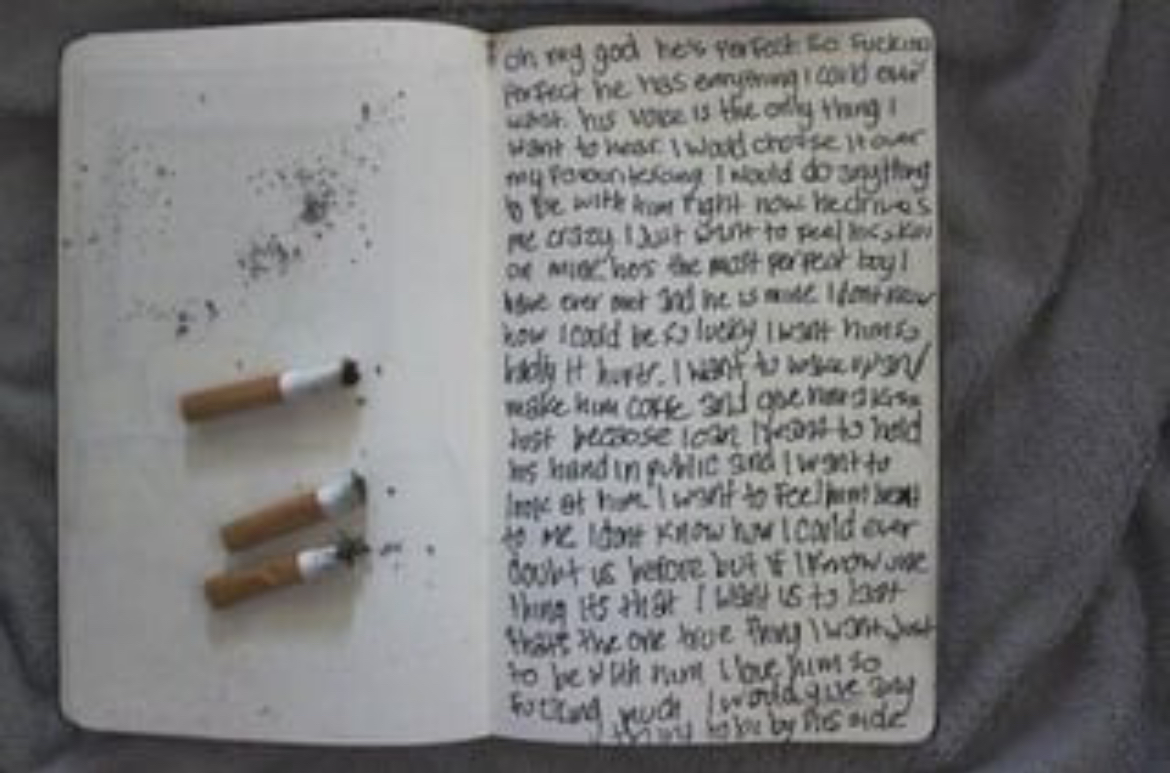 oh my god he's perfect so fucking
perfect he has everything I could ever
want. his voice is the only thing I
want to hear. I would choose it over
my favourite song I would do anything
to be with him right now he drives
me crazy. I just want to feel his skin
on mine he's the most perfect boy I
have ever met and he is mine I dont know
how I could be so lucky I want him so
badly it hurts. I want to wake up and
make him coffe and give him a kiss
Just because I can I want to hold
his hand in public and I want to
look at him. I want to feel him next
to me I dont know how I could ever
doubt us before but if I know one
thing its that I want us to last
thats the one true thing I want Just
to be with him I love him so
fucking much I would give any
thing to be by his side